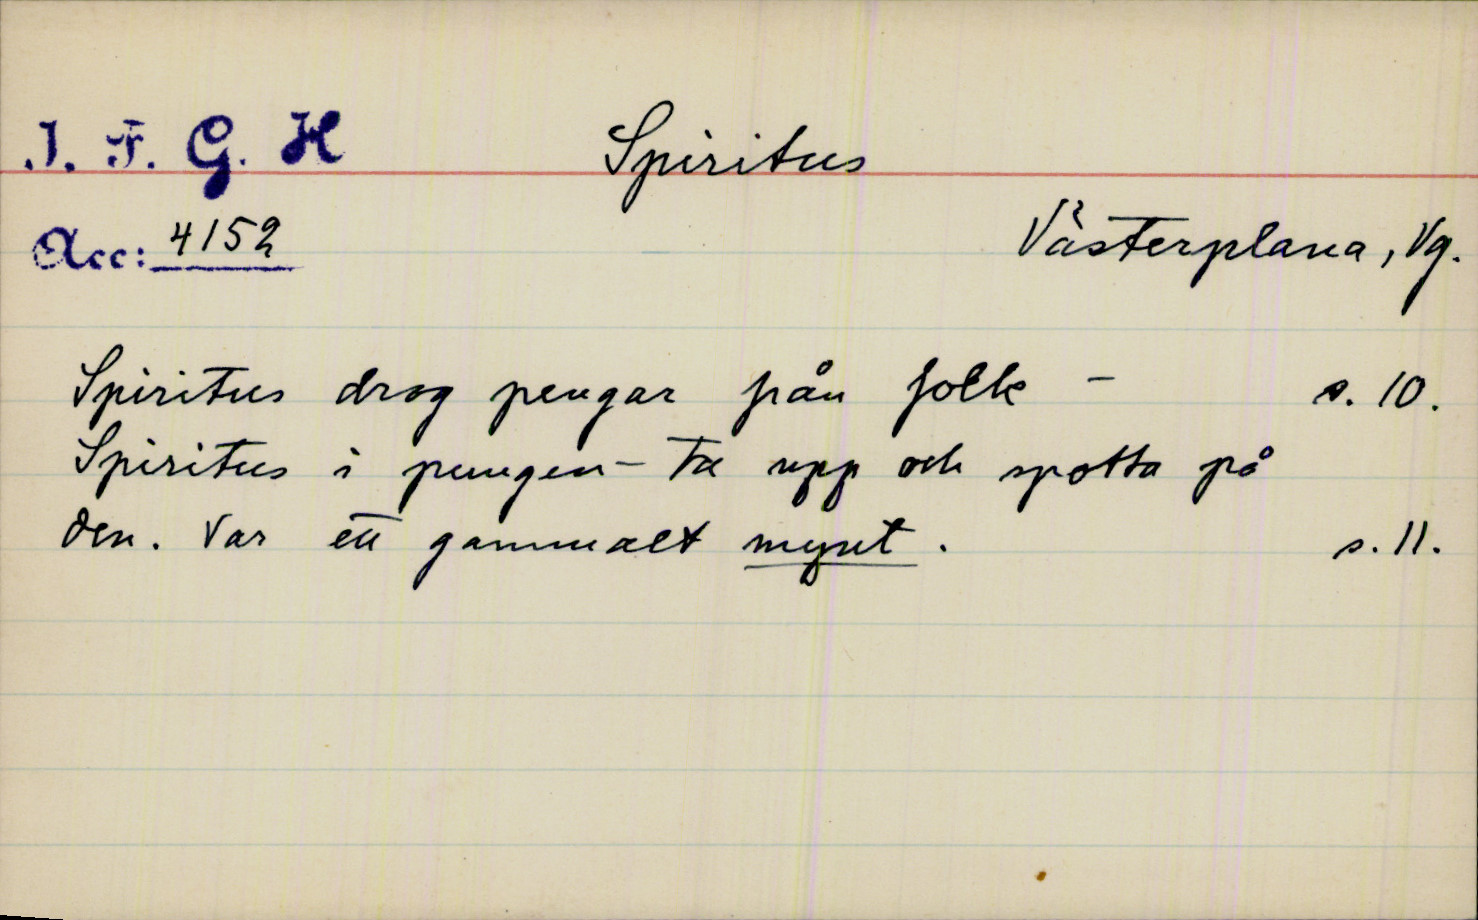 I. F. G. H
Spiritus
Acc: 4152
Västerplana, Vg.
Spiritus drog pengar från folk – s. 10.
Spiritus i pungen – Ta upp och spotta på
den. Var ett gammalt mynt. s. 11.